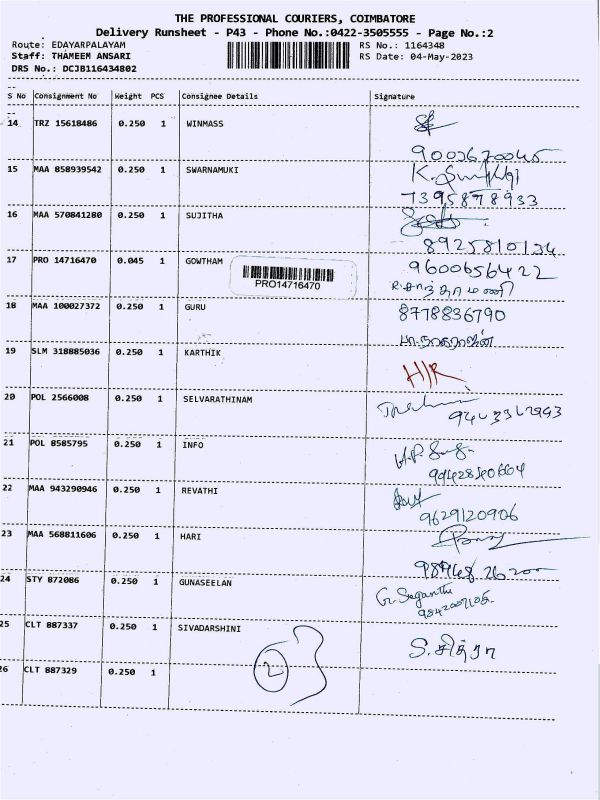 THE PROFESSIONAL COURIERS, COIMBATORE
Delivery Runsheet - P43 - Phone No.:0422-3505555 - Page No.:2
Route: EDAYARPALAYAM RS No.: 1164348
Staff: THAMEEM ANSARI RS Date: 04-May-2023
DRS No.: DCJB116434802
S No Consignment No Weight PCS Consignee Details Signature
14 TRZ 15618486 0.250 1 WINMASS
9003670045
15 MAA 858939542 0.250 1 SWARNAMUKI
7395878933
16 MAA 570841280 0.250 1 SUJITHA
8925810134
17 PRO 14716470 0.045 1 GOWTHAM 9600656422
PRO14716470
18 MAA 100027372 0.250 1 GURU 8778836790
19 SLM 318885036 0.250 1 KARTHIK
H/R
20 POL 2566008 0.250 1 SELVARATHINAM
21 POL 8585795 0.250 1 INFO
22 MAA 943290946 0.250 1 REVATHI
9629120906
23 MAA 568811606 0.250 1 HARI
24 STY 872086 0.250 1 GUNASEELAN
25 CLT 887337 0.250 1 SIVADARSHINI S.சித்ரா
26 CLT 887329 0.250 1 2